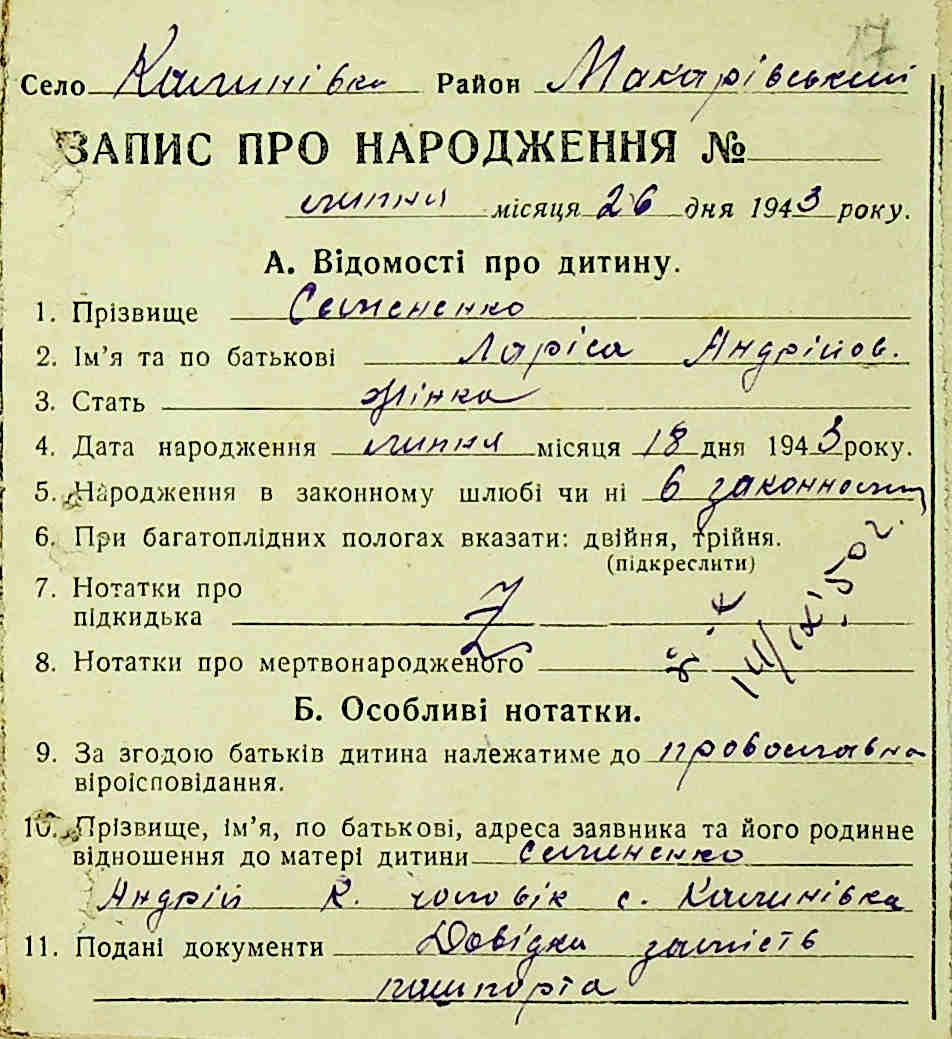 17
Село Калинівка Район Макарівський
ЗАПИС ПРО НАРОДЖЕННЯ №
липня місяця 26 дня 1943 року.
А. Відомості про дитину.
1. Прізвище Семененко
2. Ім’я та по батькові Ларіса Андрійов.
3. Стать жінка
4. Дата народження липня місяця 18 дня 1943 року.
5. Народження в законному шлюбі чи ні в законному
6. При багатоплідних пологах вказати: двійня, трійня.
(підкреслити)
7. Нотатки про
підкидька
8. Нотатки про мертвонародженого
Б. Особливі нотатки.
9. За згодою батьків дитина належатиме до православна
віроісповідання.
10. Прізвище, ім’я, по батькові, адреса заявника та його родинне
відношення до матері дитини Семененко
Андрій К. чоловік с. Калинівка
11. Подані документи Довідка замість
пашпорта